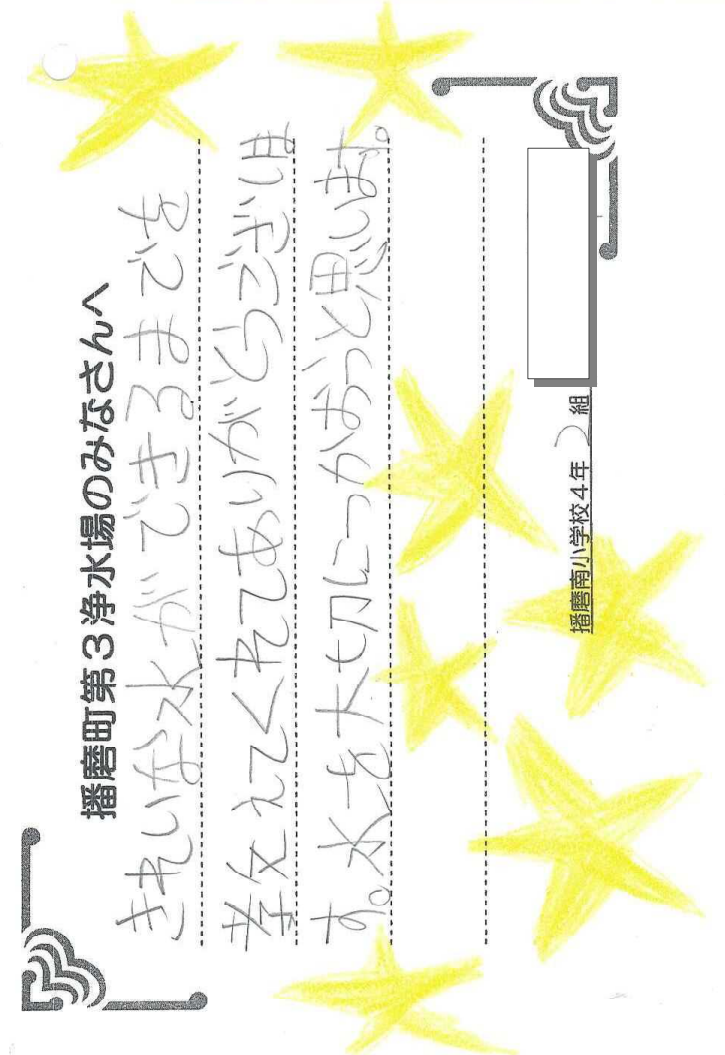 播磨町第3浄水場のみなさんへ
きれいな水ができるまでを
教えてくれてありがとうございま
す。水を大切につかおうと思います。
播磨南小学校4年2組